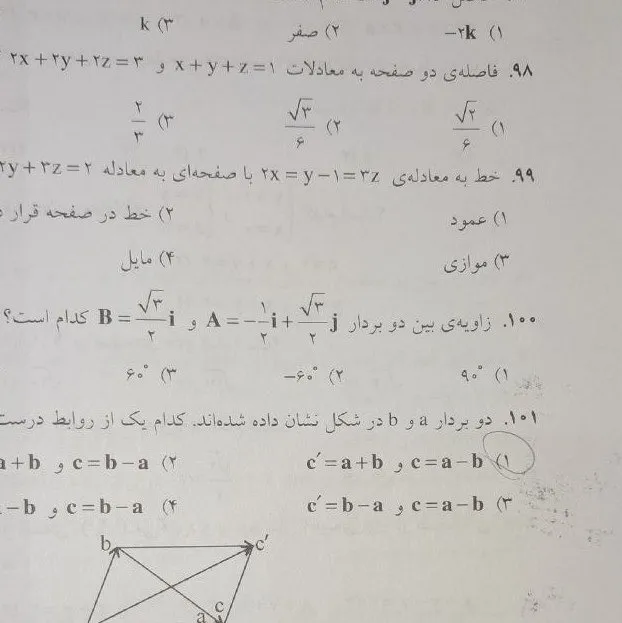 ۱) −۲k ۲) صفر ۳) k
۹۸. فاصله‌ی دو صفحه به معادلات x+y+z=۱ و ۲x+۲y+۲z=۳
۱) √۲/۶ ۲) √۳/۶ ۳) ۲/۳
۹۹. خط به معادله‌ی ۲x=y−۱=۳z با صفحه‌ای به معادله ۲y+۳z=۲
۱) عمود ۲) خط در صفحه قرار
۳) موازی ۴) مایل
۱۰۰. زاویه‌ی بین دو بردار A=−۱/۲i+√۳/۲j و B=√۳/۲i کدام است؟
۱) ۹۰° ۲) −۶۰° ۳) ۶۰°
۱۰۱. دو بردار a و b در شکل نشان داده شده‌اند. کدام یک از روابط درست
۱) c=a−b و c′=a+b ۲) c=b−a و a+b
۳) c=a−b و c′=b−a ۴) c=b−a و −b
b c′
c
a